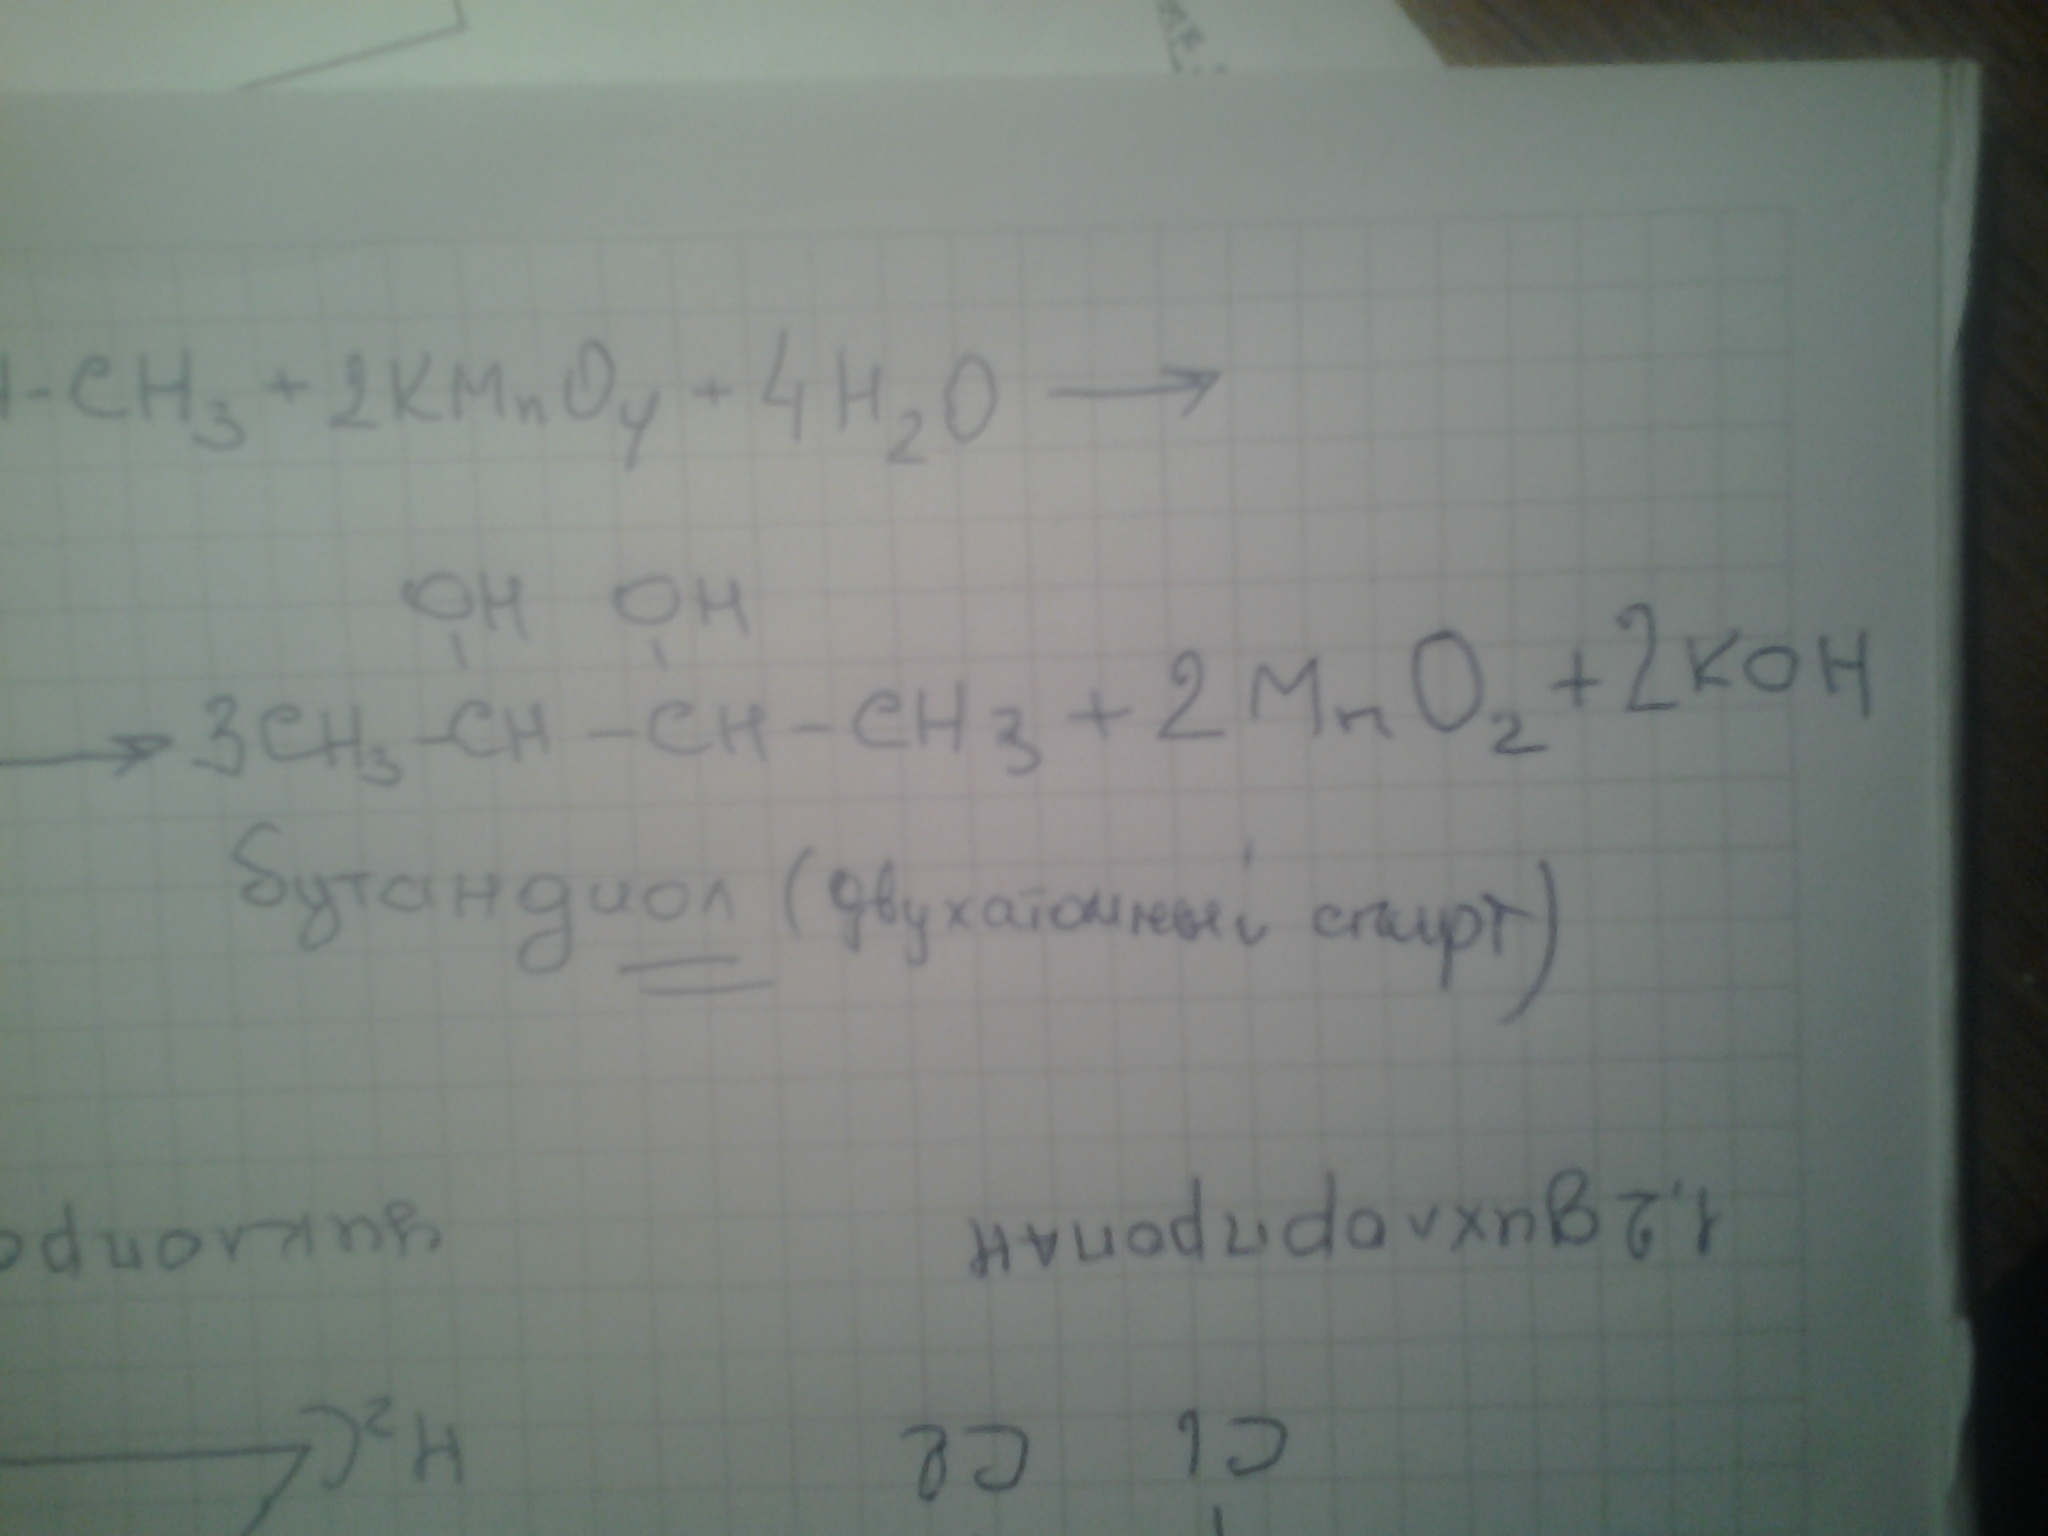 H-CH₃ + 2KMnO₄ + 4H₂O →
OH OH
→ 3CH₃-CH-CH-CH₃ + 2MnO₂ + 2KOH
бутандиол (двухатомный спирт)
1,2 дихлорпропан
циклопро
Cl Cl
H₂C